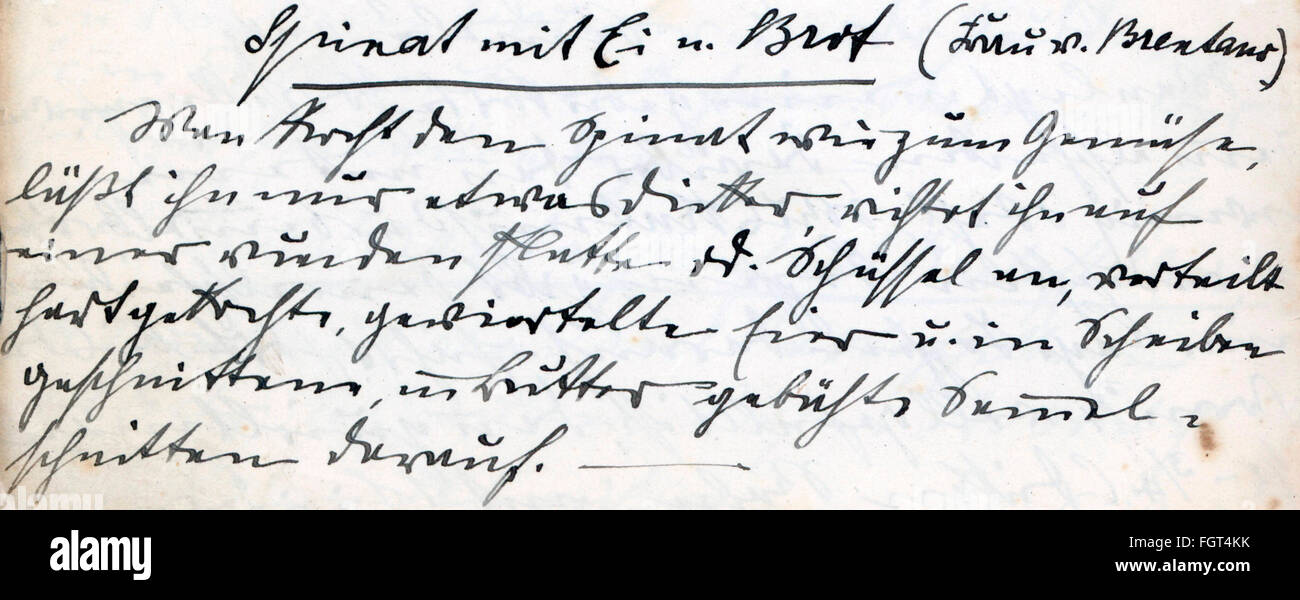 Spinat mit Ei u. Brot (Frau v. Brentano)
Man kocht den Spinat wie zum Gemüse,
läßt ihn nur etwas dicker, richtet ihn auf
einer runden Platte od. Schüssel an, verteilt
hartgekochte, geviertelte Eier u. in Scheiben
geschnittene, in Butter gebähte Semmel-
schnitten darauf.
alamy
Image ID: FGT4KK
www.alamy.com